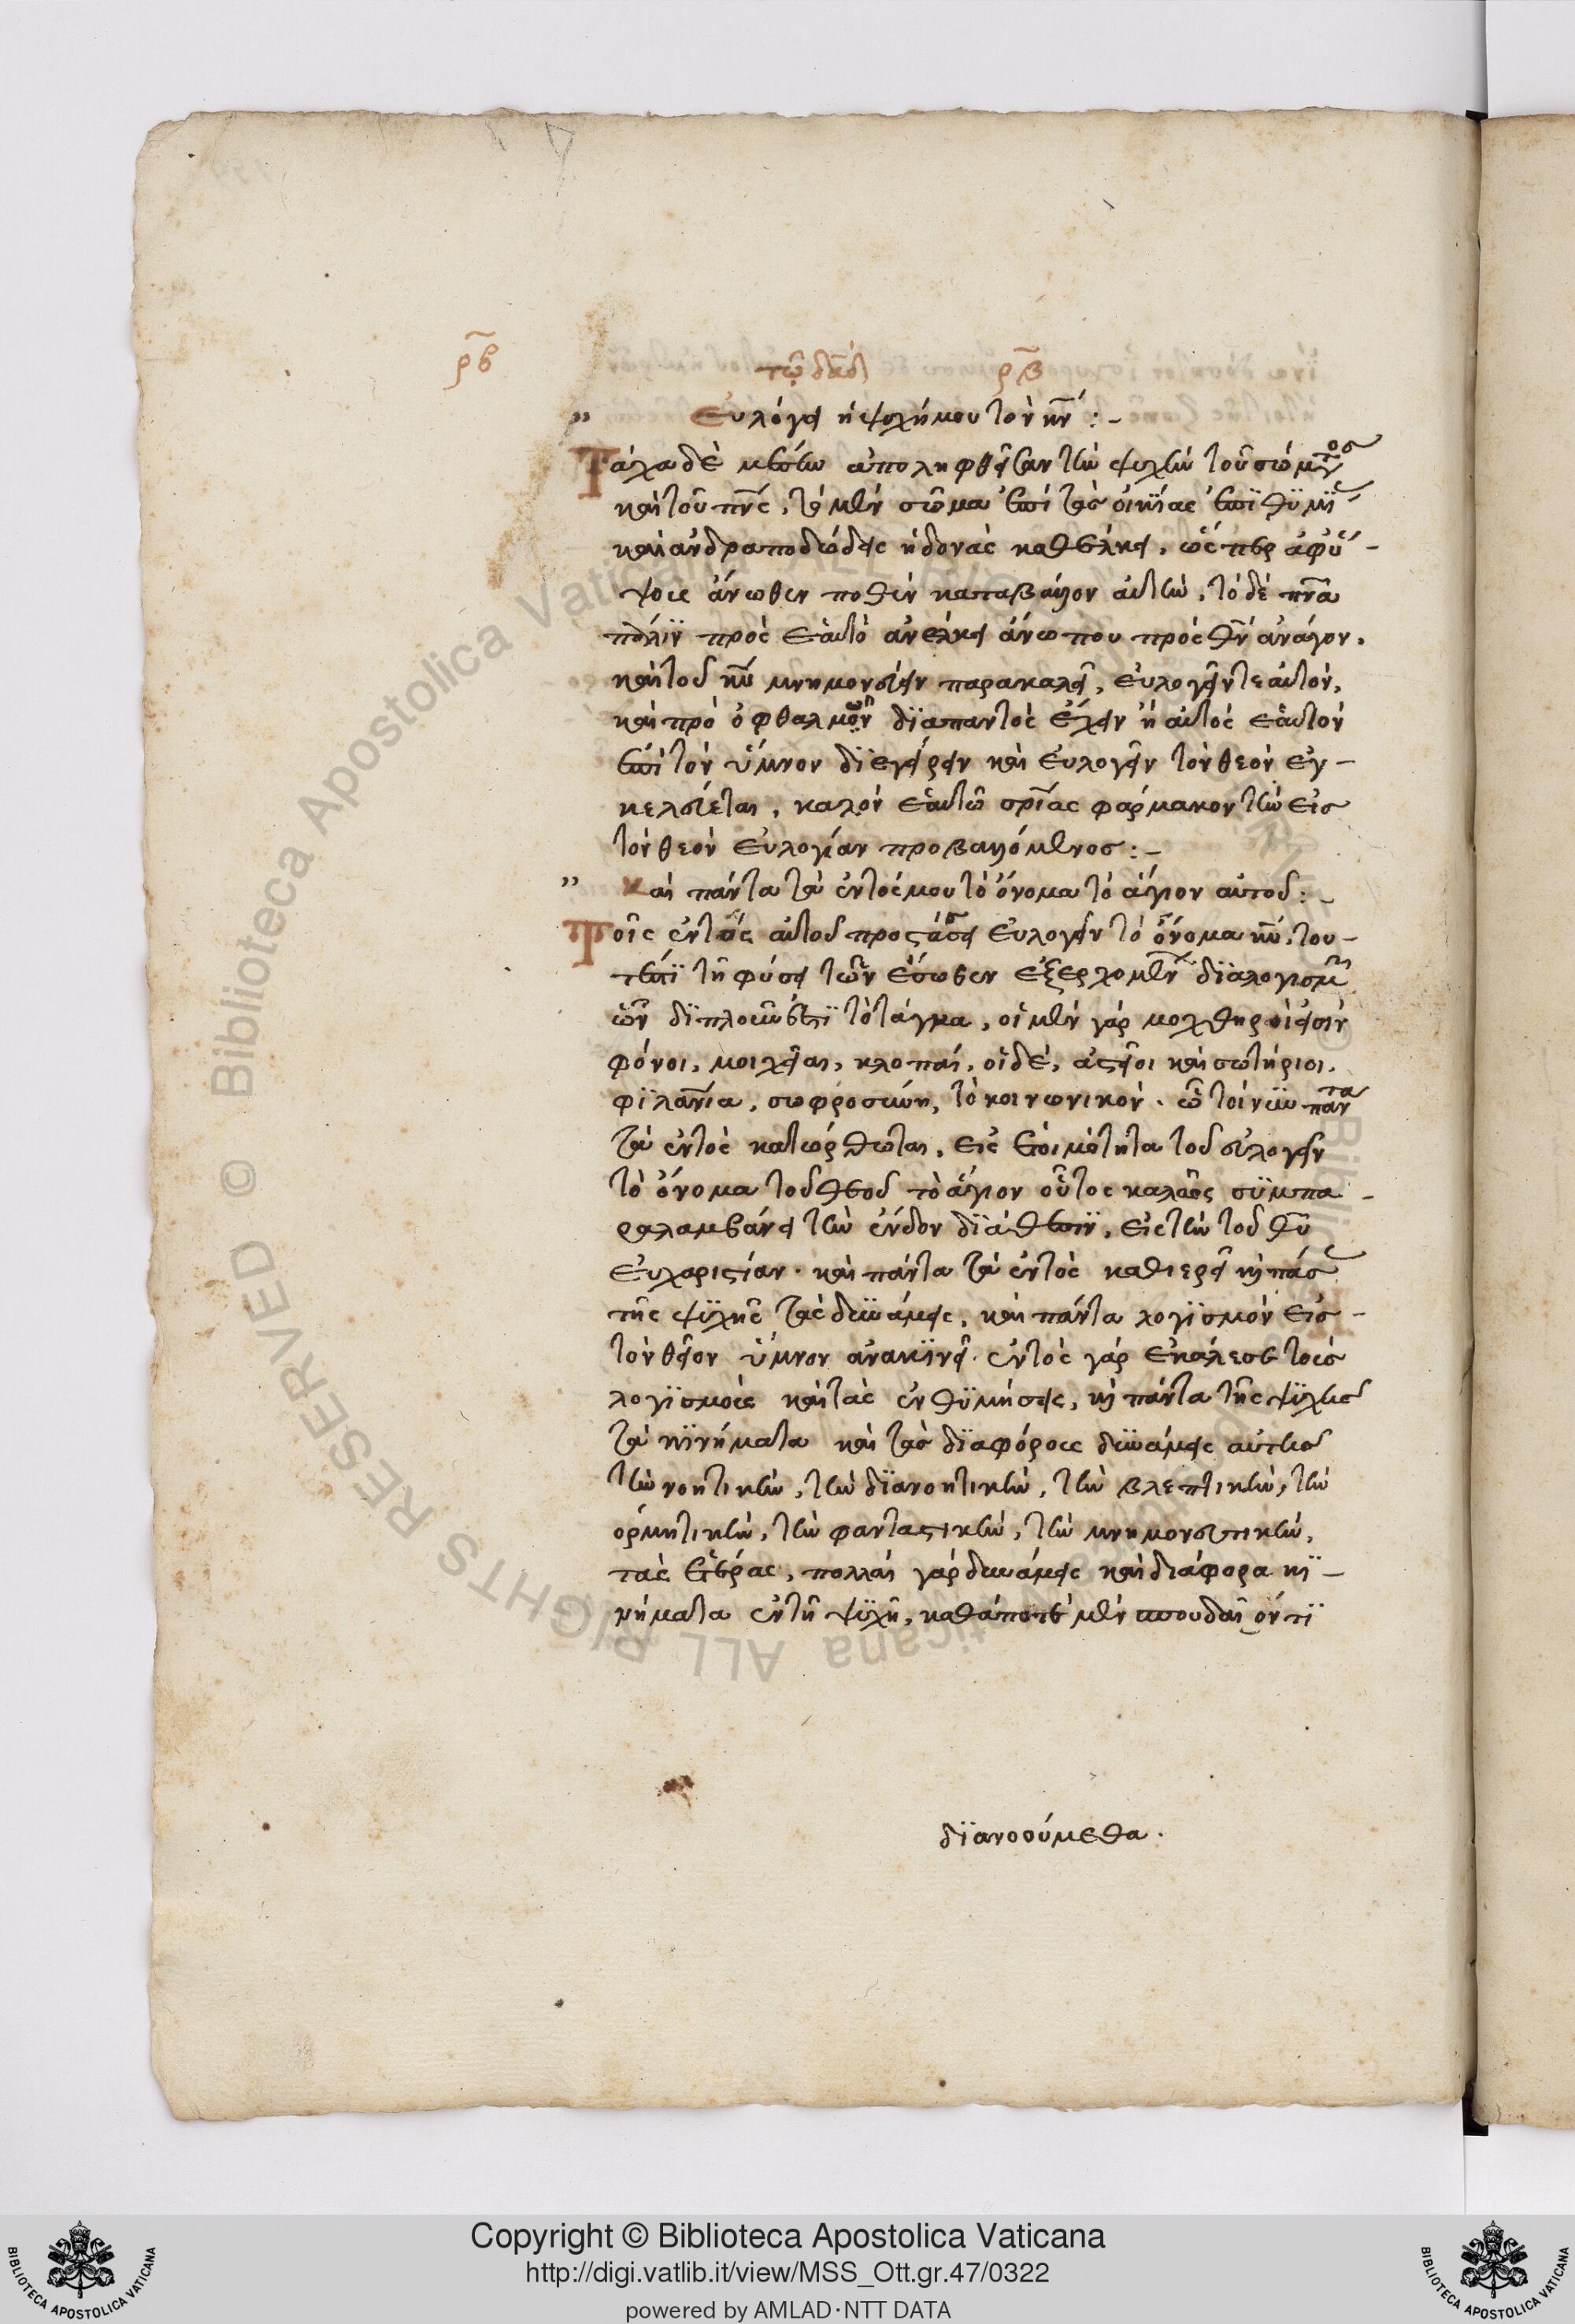 ρβ
τῷ δαδ ρβ
" Εὐλόγει ἡ ψυχή μου τὸν κν :-
Τάχα δὲ μέσην ἀποληφθεῖσαν τὴν ψυχὴν τοῦ σώματος
καὶ τοῦ πνς, τὸ μὲν σῶμα ἐπὶ τὰς οἰκίας ἐπϊθϋμϊ
καὶ ἀνδραποδώδεις ἡδονὰς καθέλκει, ὥσπερ
ἄνωθέν ποθεν καταβάλλον αὐτὴν, τὸ δὲ πνα
πάλϊν πρὸς ἑαυτὸ ἀνέλκει ἄνω που πρὸς θν ἀνάγον,
καὶ τοῦ κυ μνημονεύειν παρακαλεῖ, εὐλογεῖν τε αὐτὸν,
καὶ πρὸ ὀφθαλμῶν δϊαπαντὸς ἔχειν ἢ αὐτὸς ἑαυτὸν
ἐπὶ τὸν ὕμνον δϊεγείρειν καὶ εὐλογεῖν τὸν θεὸν ἐγ-
κελεύεται, καλὸν ἑαυτῶ σρίας φάρμακον τὴν εἰς
τὸν θεὸν εὐλογίαν προβαλλόμενος :-
" Καὶ πάντα τὰ ἐντός μου τὸ ὄνομα τὸ ἅγιον αὐτοῦ :-
Τοῖς ἐντὸς αὐτοῦ προστάσσει εὐλογεῖν τὸ ὄνομα κυ, του-
τέστϊ τῆ φύσει τῶν ἔσωθεν ἐξερχομένων δϊαλογισμῶν
ὧν δϊπλοῦν ἐστϊ τὸ τάγμα, οἱ μὲν γάρ μοχθηροὶ εἰσὶν
φόνοι, μοιχεῖαι, κλοπαί, οἱ δέ, ἀστεῖοι καὶ σωτήριοι,
φϊλανία, σωφροσύνη, τὸ κοινωνικόν. ὧ τοίνϋν πάντα
τὰ ἐντὸς κατώρθωται, εἰς ἑτοιμότητα τοῦ εὐλογεῖν
τὸ ὄνομα τοῦ θεοῦ τὸ ἅγιον οὗτος καλῶς σϋμπα-
ραλαμβάνει τὴν ἔνδον δϊάθεσϊν, εἰς τὴν τοῦ θυ
εὐχαριστίαν. καὶ πάντα τὰ ἐντὸς καθιεροῖ κὶ πάσας
τῆς ψϋχῆς τὰς δϋνάμεις, καὶ πάντα λογϊσμὸν εἰς-
τὸν θεῖον ὕμνον ἀνακϊνεῖ. ἐντὸς γὰρ ἐκάλεσε τοὺς
λογϊσμοὺς καὶ τὰς ἐνθϋμήσεις, κὶ πάντα τῆς ψϋχῆς
τὰ κϊνήματα καὶ τὰς δϊαφόρους δϋνάμεις αὐτῆς
τὴν νοητικὴν, τὴν δϊανοητικὴν, τὴν βλεπτικὴν, τὴν
ὁρμητικὴν, τὴν φανταστικὴν, τὴν μνημονευτικὴν,
τὰς ἑτέρας, πολλαὶ γὰρ δυνάμεις καὶ διάφορα κϊ-
νήματα ἐν τῆ ψϋχῆ, καθάποτε μὲν σπουδαῖόν τϊ
δϊανοούμεθα.
Copyright © Biblioteca Apostolica Vaticana
http://digi.vatlib.it/view/MSS_Ott.gr.47/0322
powered by AMLAD·NTT DATA